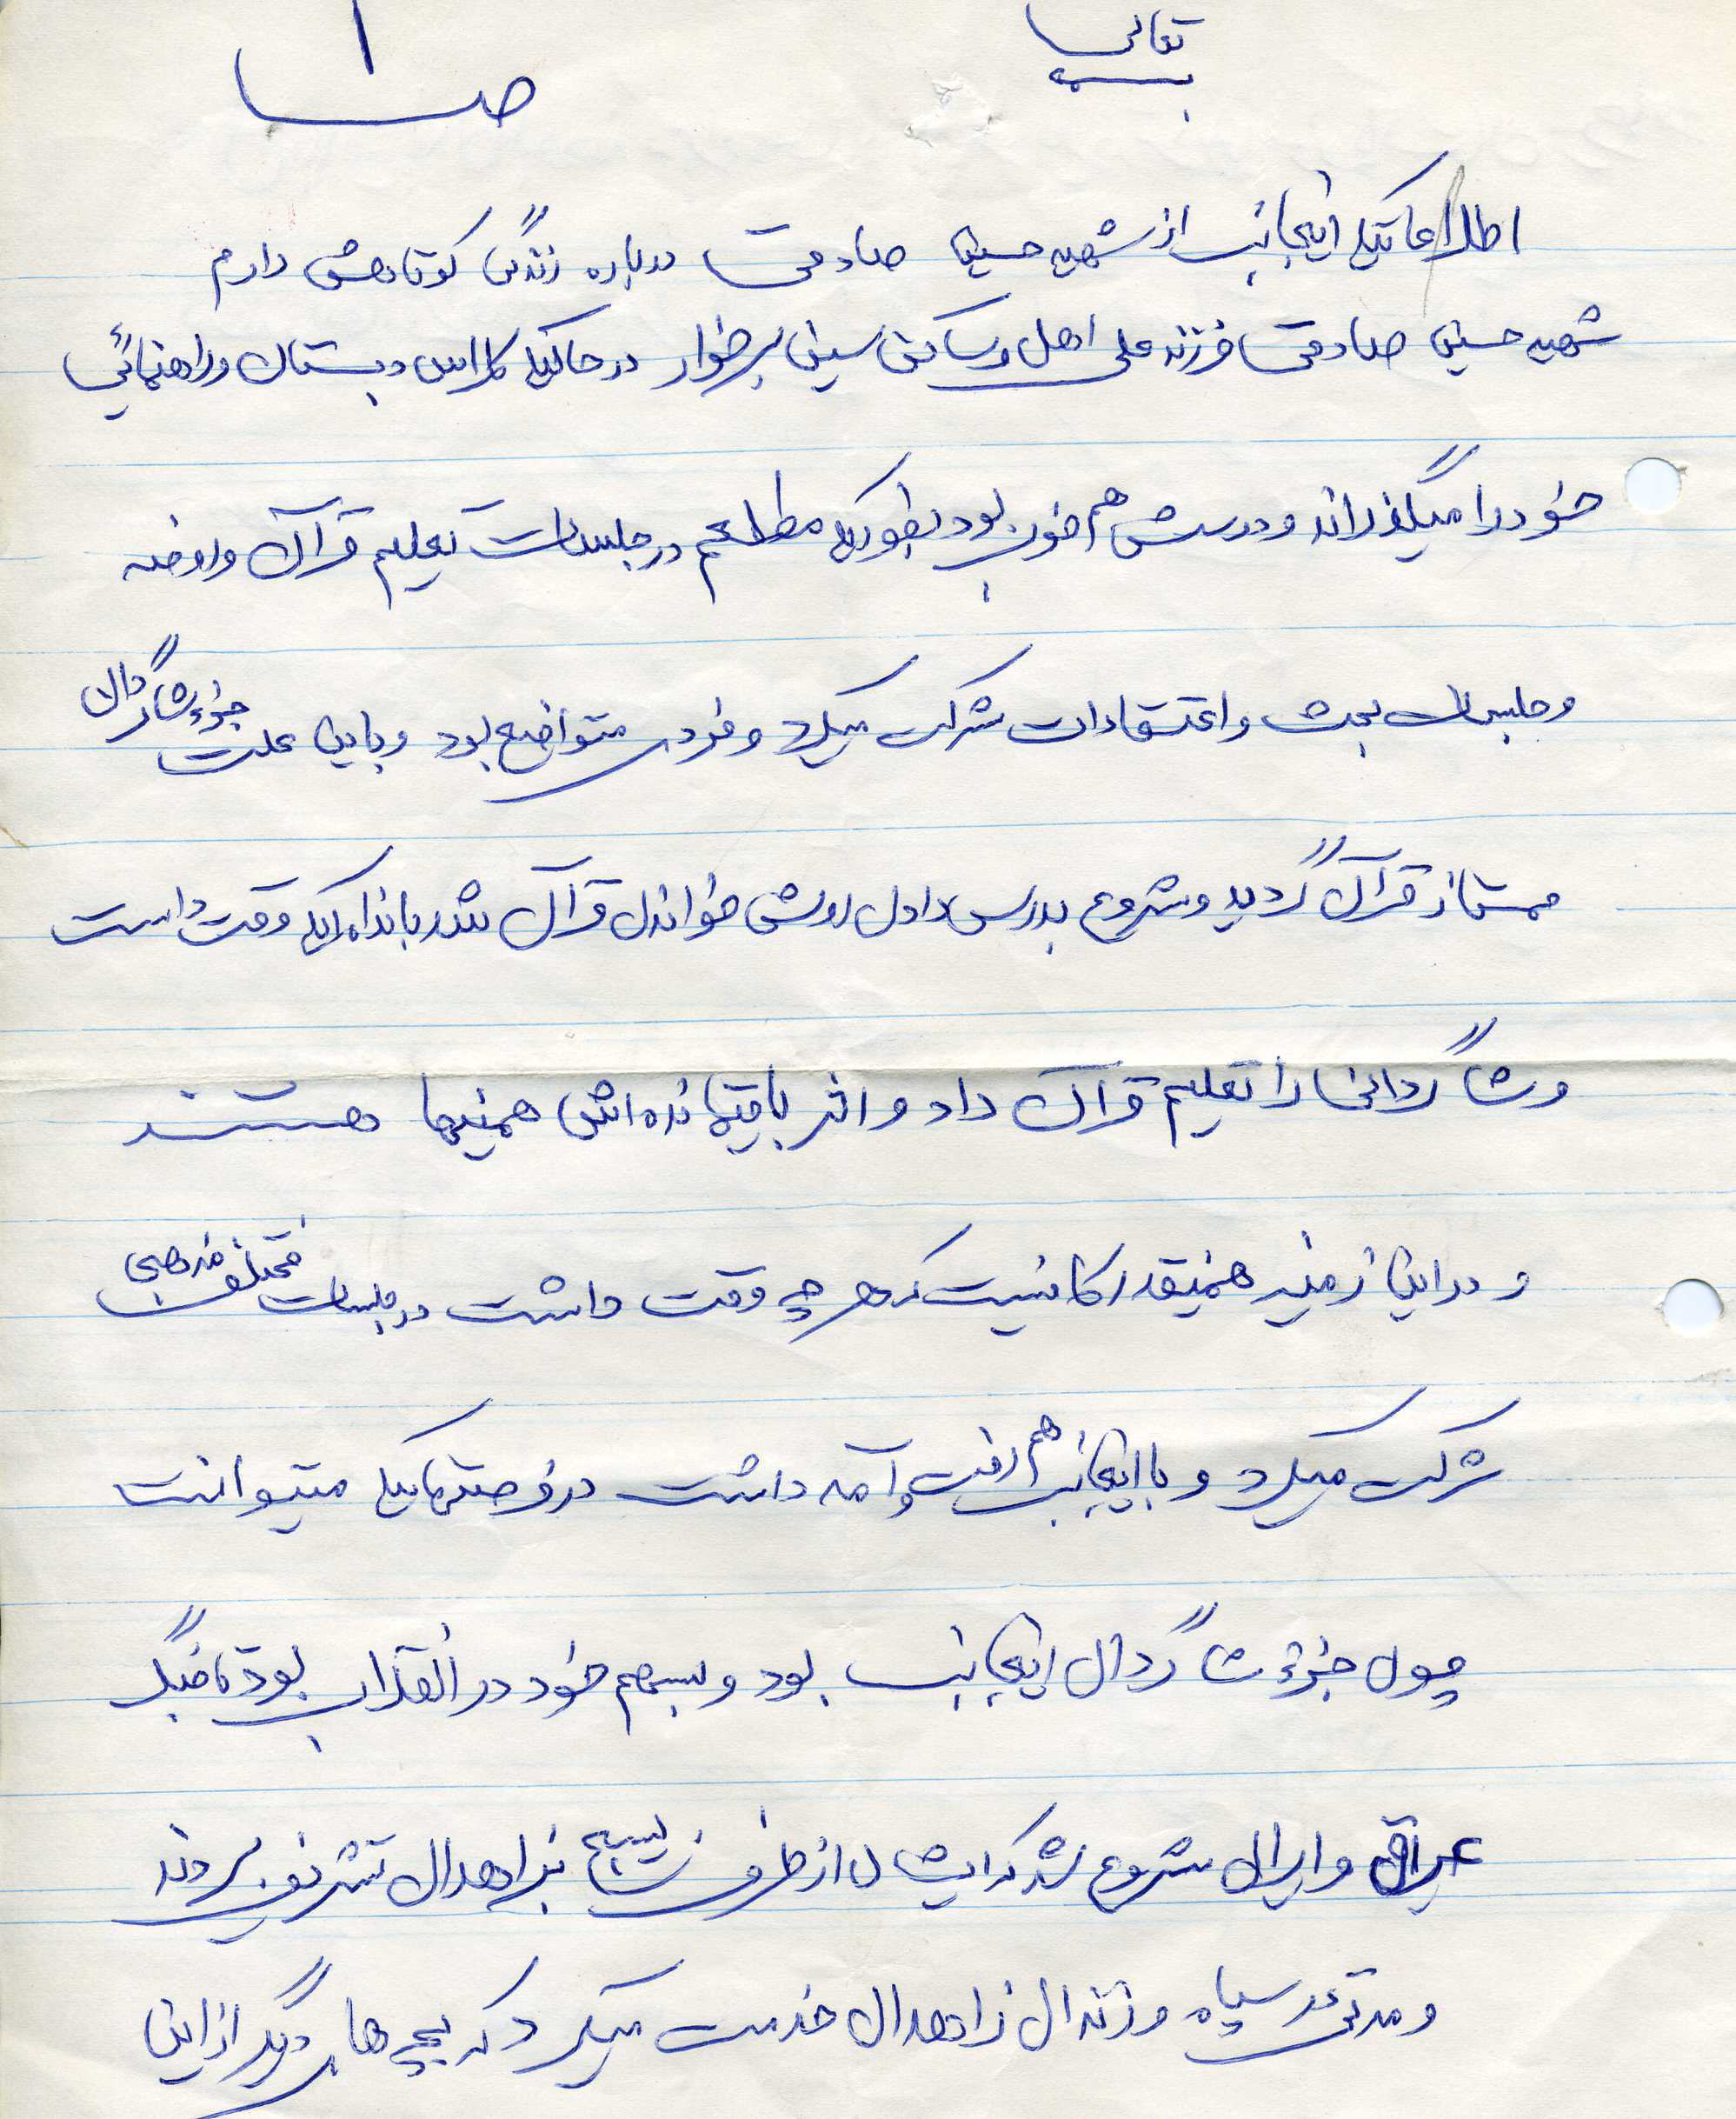 بسمه تعالی
صـ ۱
اطلاعاتیکه اینجانب از شهید حسین صادقی درباره زندگی کوتاهش دارم
شهید حسین صادقی فرزند علی اهل و ساکن سین برخوار در حالیکه کلاس دبستان و راهنمائی
خود را میگذراند و درسش هم خوب بود بطوریکه مطلعم در جلسات تعلیم قرآن و روضه
و جلسات بحث و اعتقادات شرکت میکرد و فردی متواضع بود و باین علت جزء شاگردان
ممتاز قرآن گردید و شروع بدرس دادن روش خواندن قرآن شد باندازه ایکه وقت داشت
و شاگردانی را تعلیم قرآن داد و اثر باقیمانده اش همینها هستند
و در این زمینه همینقدر کافیست که هر چه وقت داشت در جلسات مختلف مذهبی
شرکت میکرد و با اینجانب هم رفت و آمد داشت در فرصتهائیکه میتوانست
چون جزء شاگردان اینجانب بود و بسهم خود در انقلاب بود تا جنگ
عراق و ایران شروع شد که ایشان از طرف بسیج بزاهدان تشریف بردند
و مدتی در سپاه و زندان زاهدان خدمت میکرد که بچه های دیگر از این